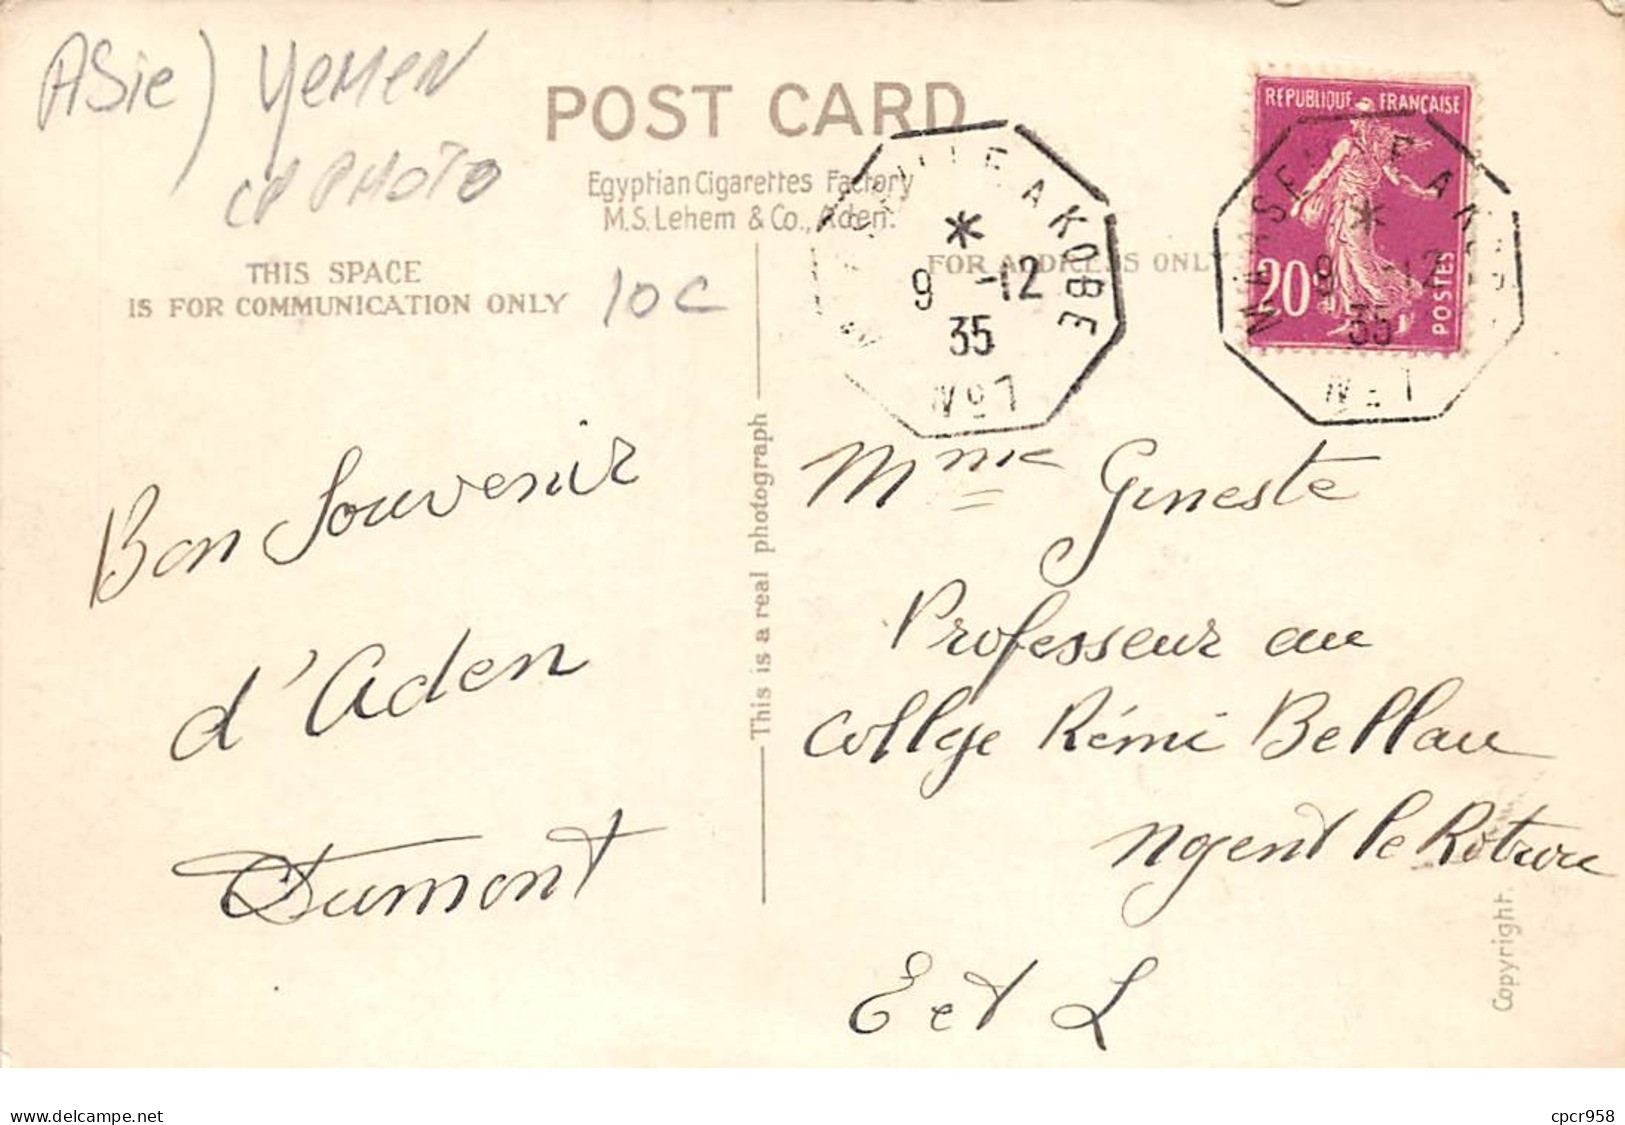 ASie) YeMeN
CP PHOTO
POST CARD
Egyptian Cigarettes Factory
M.S. Lehem & Co., Aden.
THIS SPACE
IS FOR COMMUNICATION ONLY
10 C
FOR ADDRESS ONLY
MARSEILLE A KOBE
*
9 -12
35
No 1
REPUBLIQUE FRANÇAISE
20c
POSTES
MARSEILLE A KOBE
*
9 -12
35
No 1
Bon Souvenir
d'Aden
Dumont
This is a real photograph
Mme Gineste
Professeur au
Collge Rémi Bellau
Ngent le Rotrou
E et L
Copyright.
delcampe.net
cpcr958